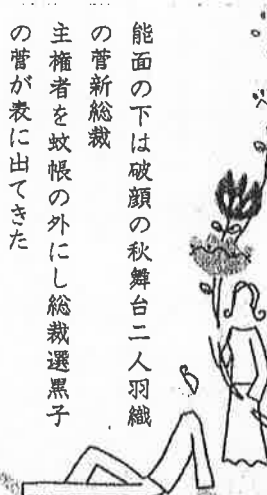 能面の下は破顔の秋舞台二人羽織
の菅新総裁
主権者を蚊帳の外にし総裁選黒子
の菅が表に出てきた